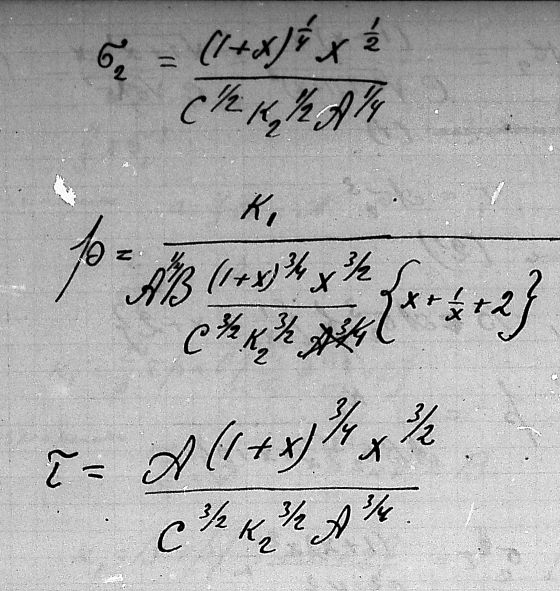 σ₂ = (1+x)^{1/4} x^{1/2} / C^{1/2} K₂^{1/2} A^{1/4}
p = K₁ / A^{1/4} B (1+x)^{3/4} x^{3/2} / C^{3/2} K₂^{3/2} A^{3/4} {x + 1/x + 2}
τ = A (1+x)^{3/4} x^{3/2} / C^{3/2} K₂^{3/2} A^{3/4}